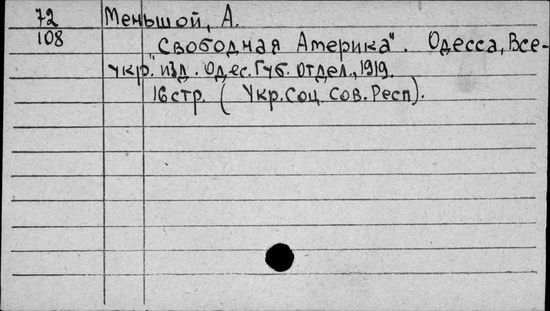 72 Меньшой, А.
108 „Свободная Америка". Одесса, Все-
укр. изд. Одес. Губ. отдел., 1919.
16 стр. (Укр. Соц. Сов. Респ).